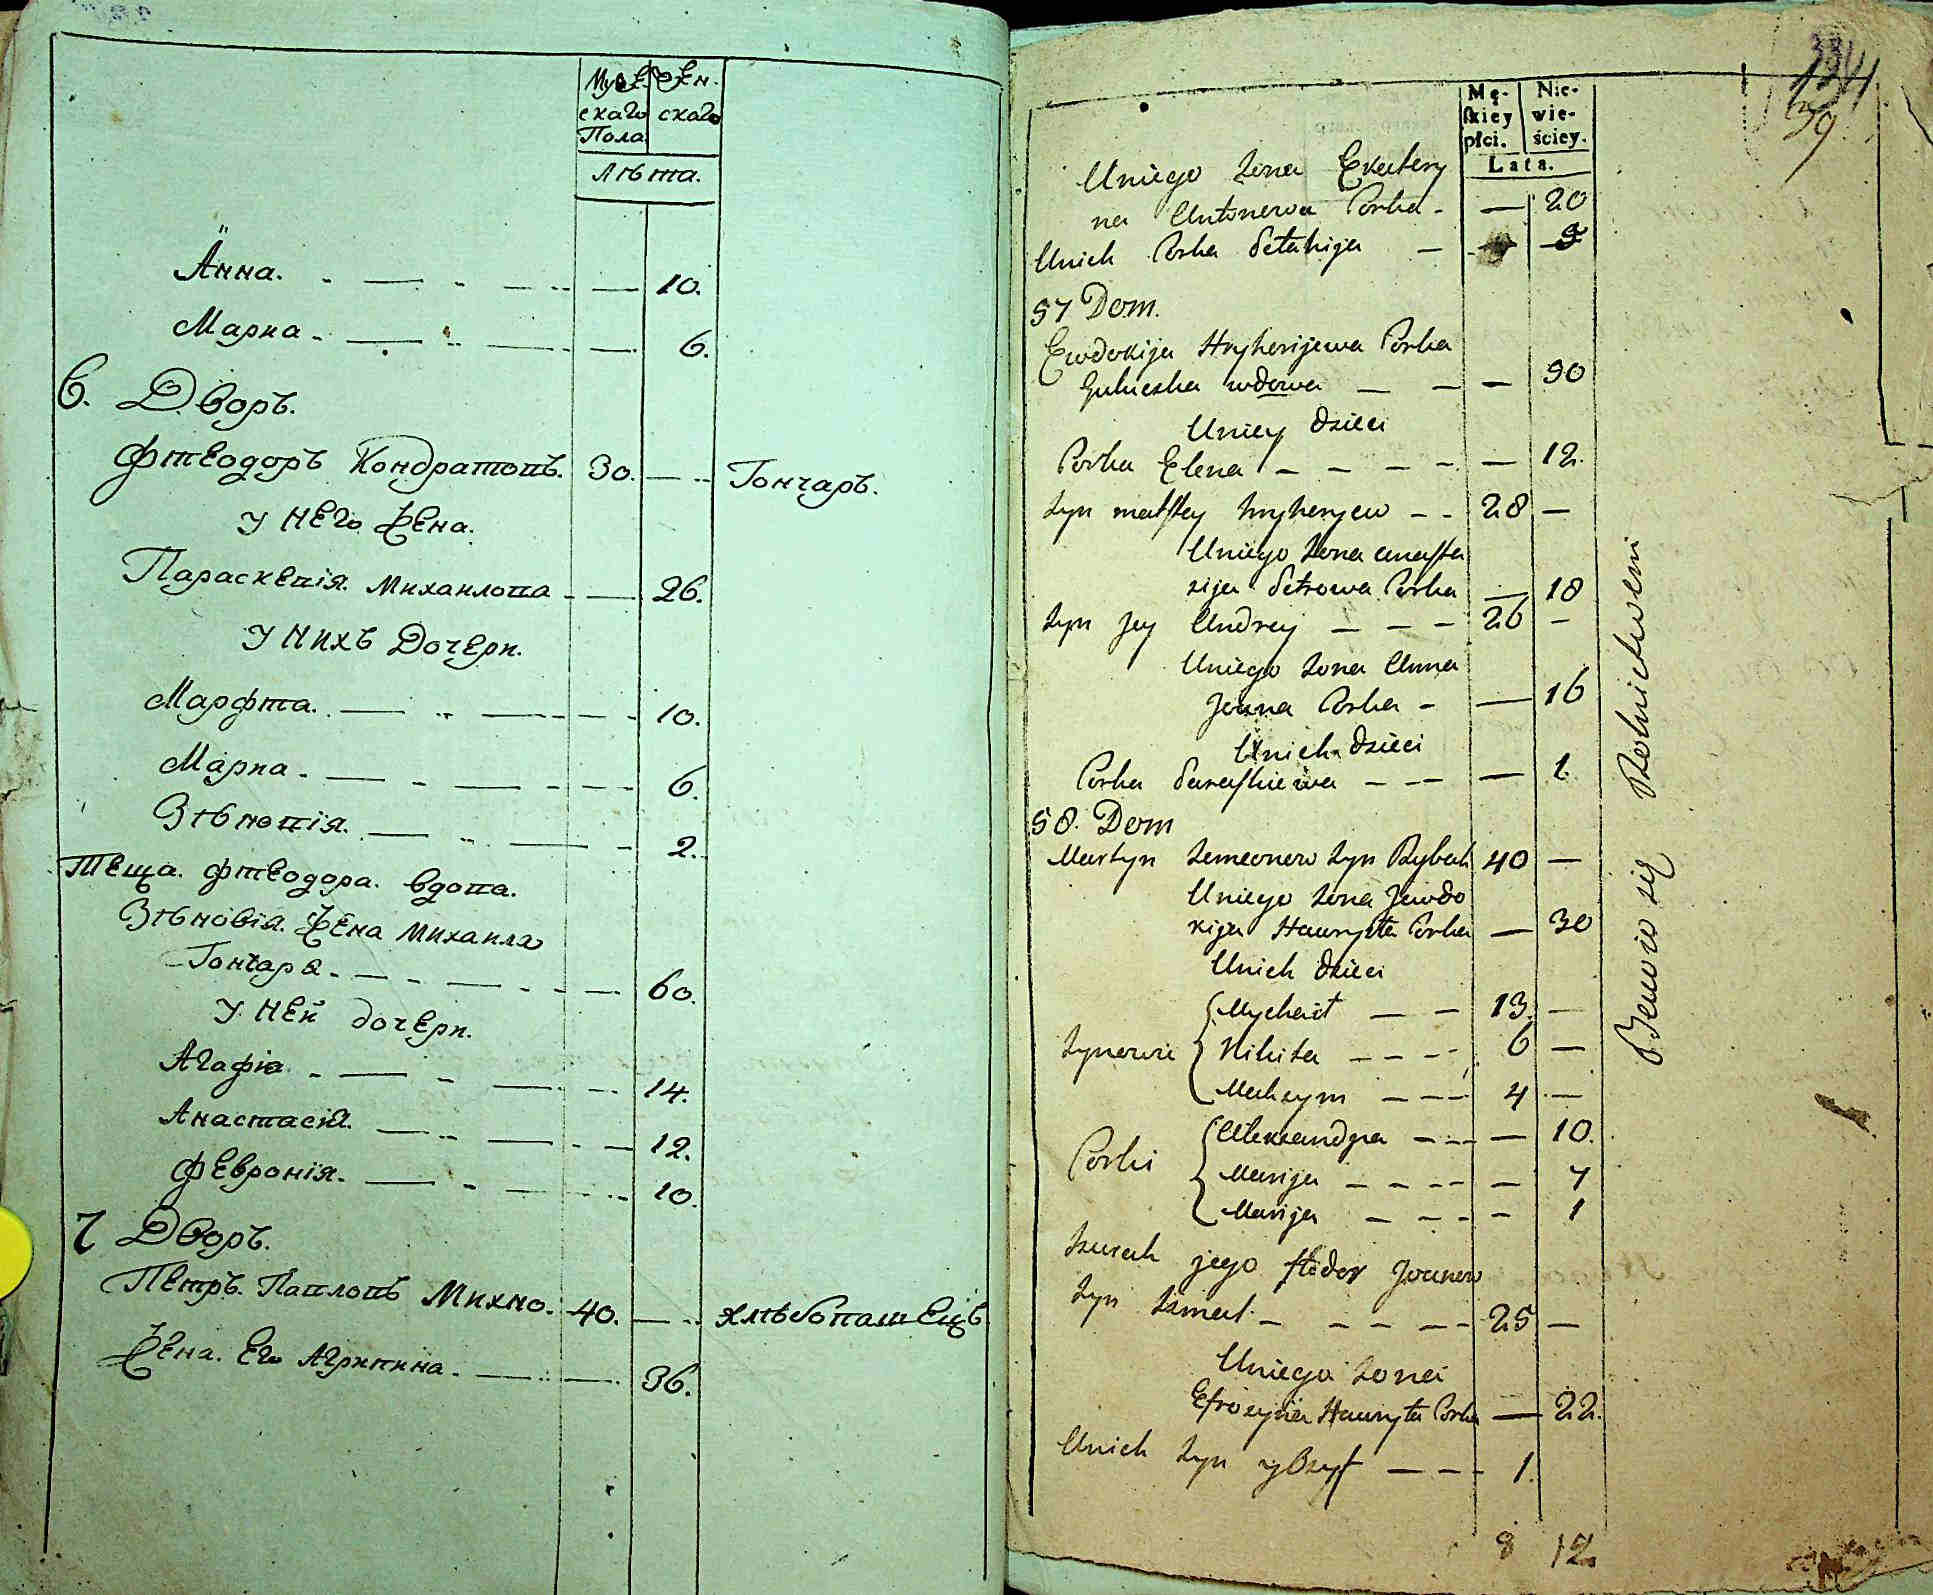 Мужескаго Пола
Женскаго
Лѣта.
Анна. 10.
Мариа 6.
6. Дворъ.
Фтеодоръ Кондратопъ. 30. Гончаръ.
у него жена.
Параскепія. Михаилопа 26.
у нихъ дочери.
Марфта. 10.
Мариа 6.
Зѣнопія. 2.
Теща. Фтеодора. вдопа.
Зѣновія. жена михаила
Гончара 60.
у ней дочери.
Агафіа 14.
Анастасіа. 12.
Февронія. 10.
7 Дворъ.
Петръ. Паплопъ Михно. 40. хлѣбопашецъ
жена. его Агрипина. 36.
Mę-
skiey
płci.
Nie-
wie-
ściey.
Lata.
39
Uniego żona Ekatery
na Antonowa Corka — 20
Unich Corka Pełahija — 9
57 Dom.
Ewdokija Hryhorijewa Corka
wdowa — 50
Uniey dzieci
Corka Elena — 12.
Syn matfiey hryheryew 28 —
Uniego żona anasta
zija Petrowa Corka — 18
Syn jey Andrey 26 —
Uniego żona Anna
Corka — 16
Unich dzieci
Corka Paraskiewa — 1.
58. Dom
Martyn Semeonow Syn Rybak 40 —
Uniego żona Jewdo
kija Hawryła Corka — 30
Unich dzieci
Synowie
Mychaił 13. —
Nikita 6 —
Maksym 4 —
Corki
Alexandra — 10.
Marija — 7
Marija — 1
Szurak jego fedor Joanow
Syn 25 —
Uniego żona
Efrozyna Hawryła Corka — 22.
Unich Syn 1.
8 12
Bawio się Rolnictwem